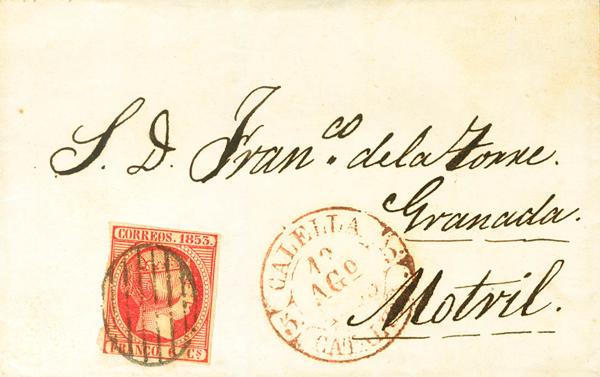 S. D. Fran.co de la Torre.
Granada.
Motril.
CORREOS. 1853.
FRANCO. 6 CS
CALELLA
12
AGO